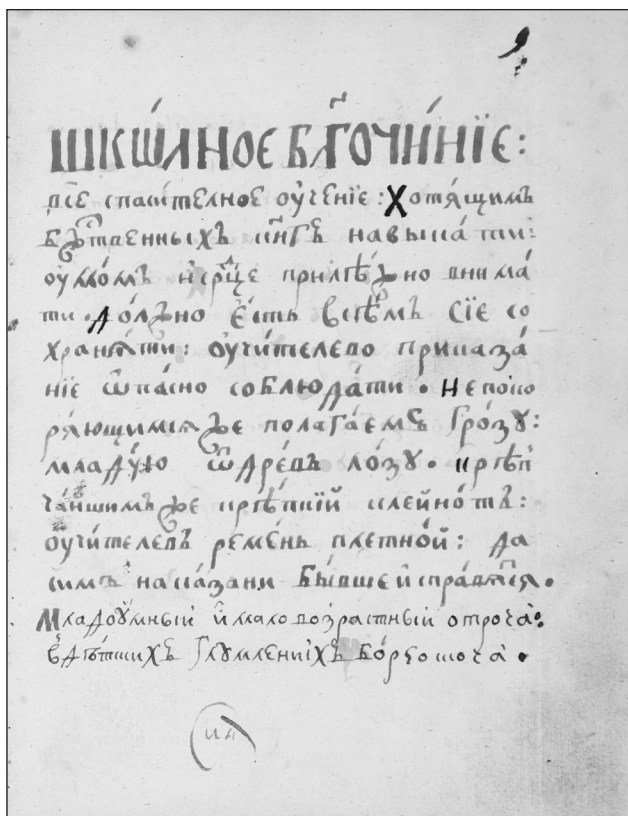 ШКѠ́ЛНОЕ БЛГ҃ОЧИ́НЇЕ:
всѐ спаси́телное оу҆че́нїе: Хотѧ́щимъ
бжⷭ҇твенныхъ кни́гъ навыка́ти:
оу҆мо́мъ и҆ срⷣцемъ прилѣ́жно внима́
ти. до́лжно є҆́сть всѣ́мъ сїѐ со
хранѧ́ти: оу҆чи́телево приказа́
нїе ѡ҆па́сно соблюда́ти. Непоко
рѧ́ющимсѧ же полага́емъ гро́зу:
младу́ю ѿ дре́въ ло́зу. крѣп
ча́йшимъ же крѣ́пкїй клейно́тъ:
оу҆чи́телевъ реме́нь плетно́й: да
симъ нака́зани бы́вше и҆спра́вѧтсѧ.
Младоу́мный и҆ маловозрастный отроча̀:
в дѣ́тскихъ глумле́нїихъ